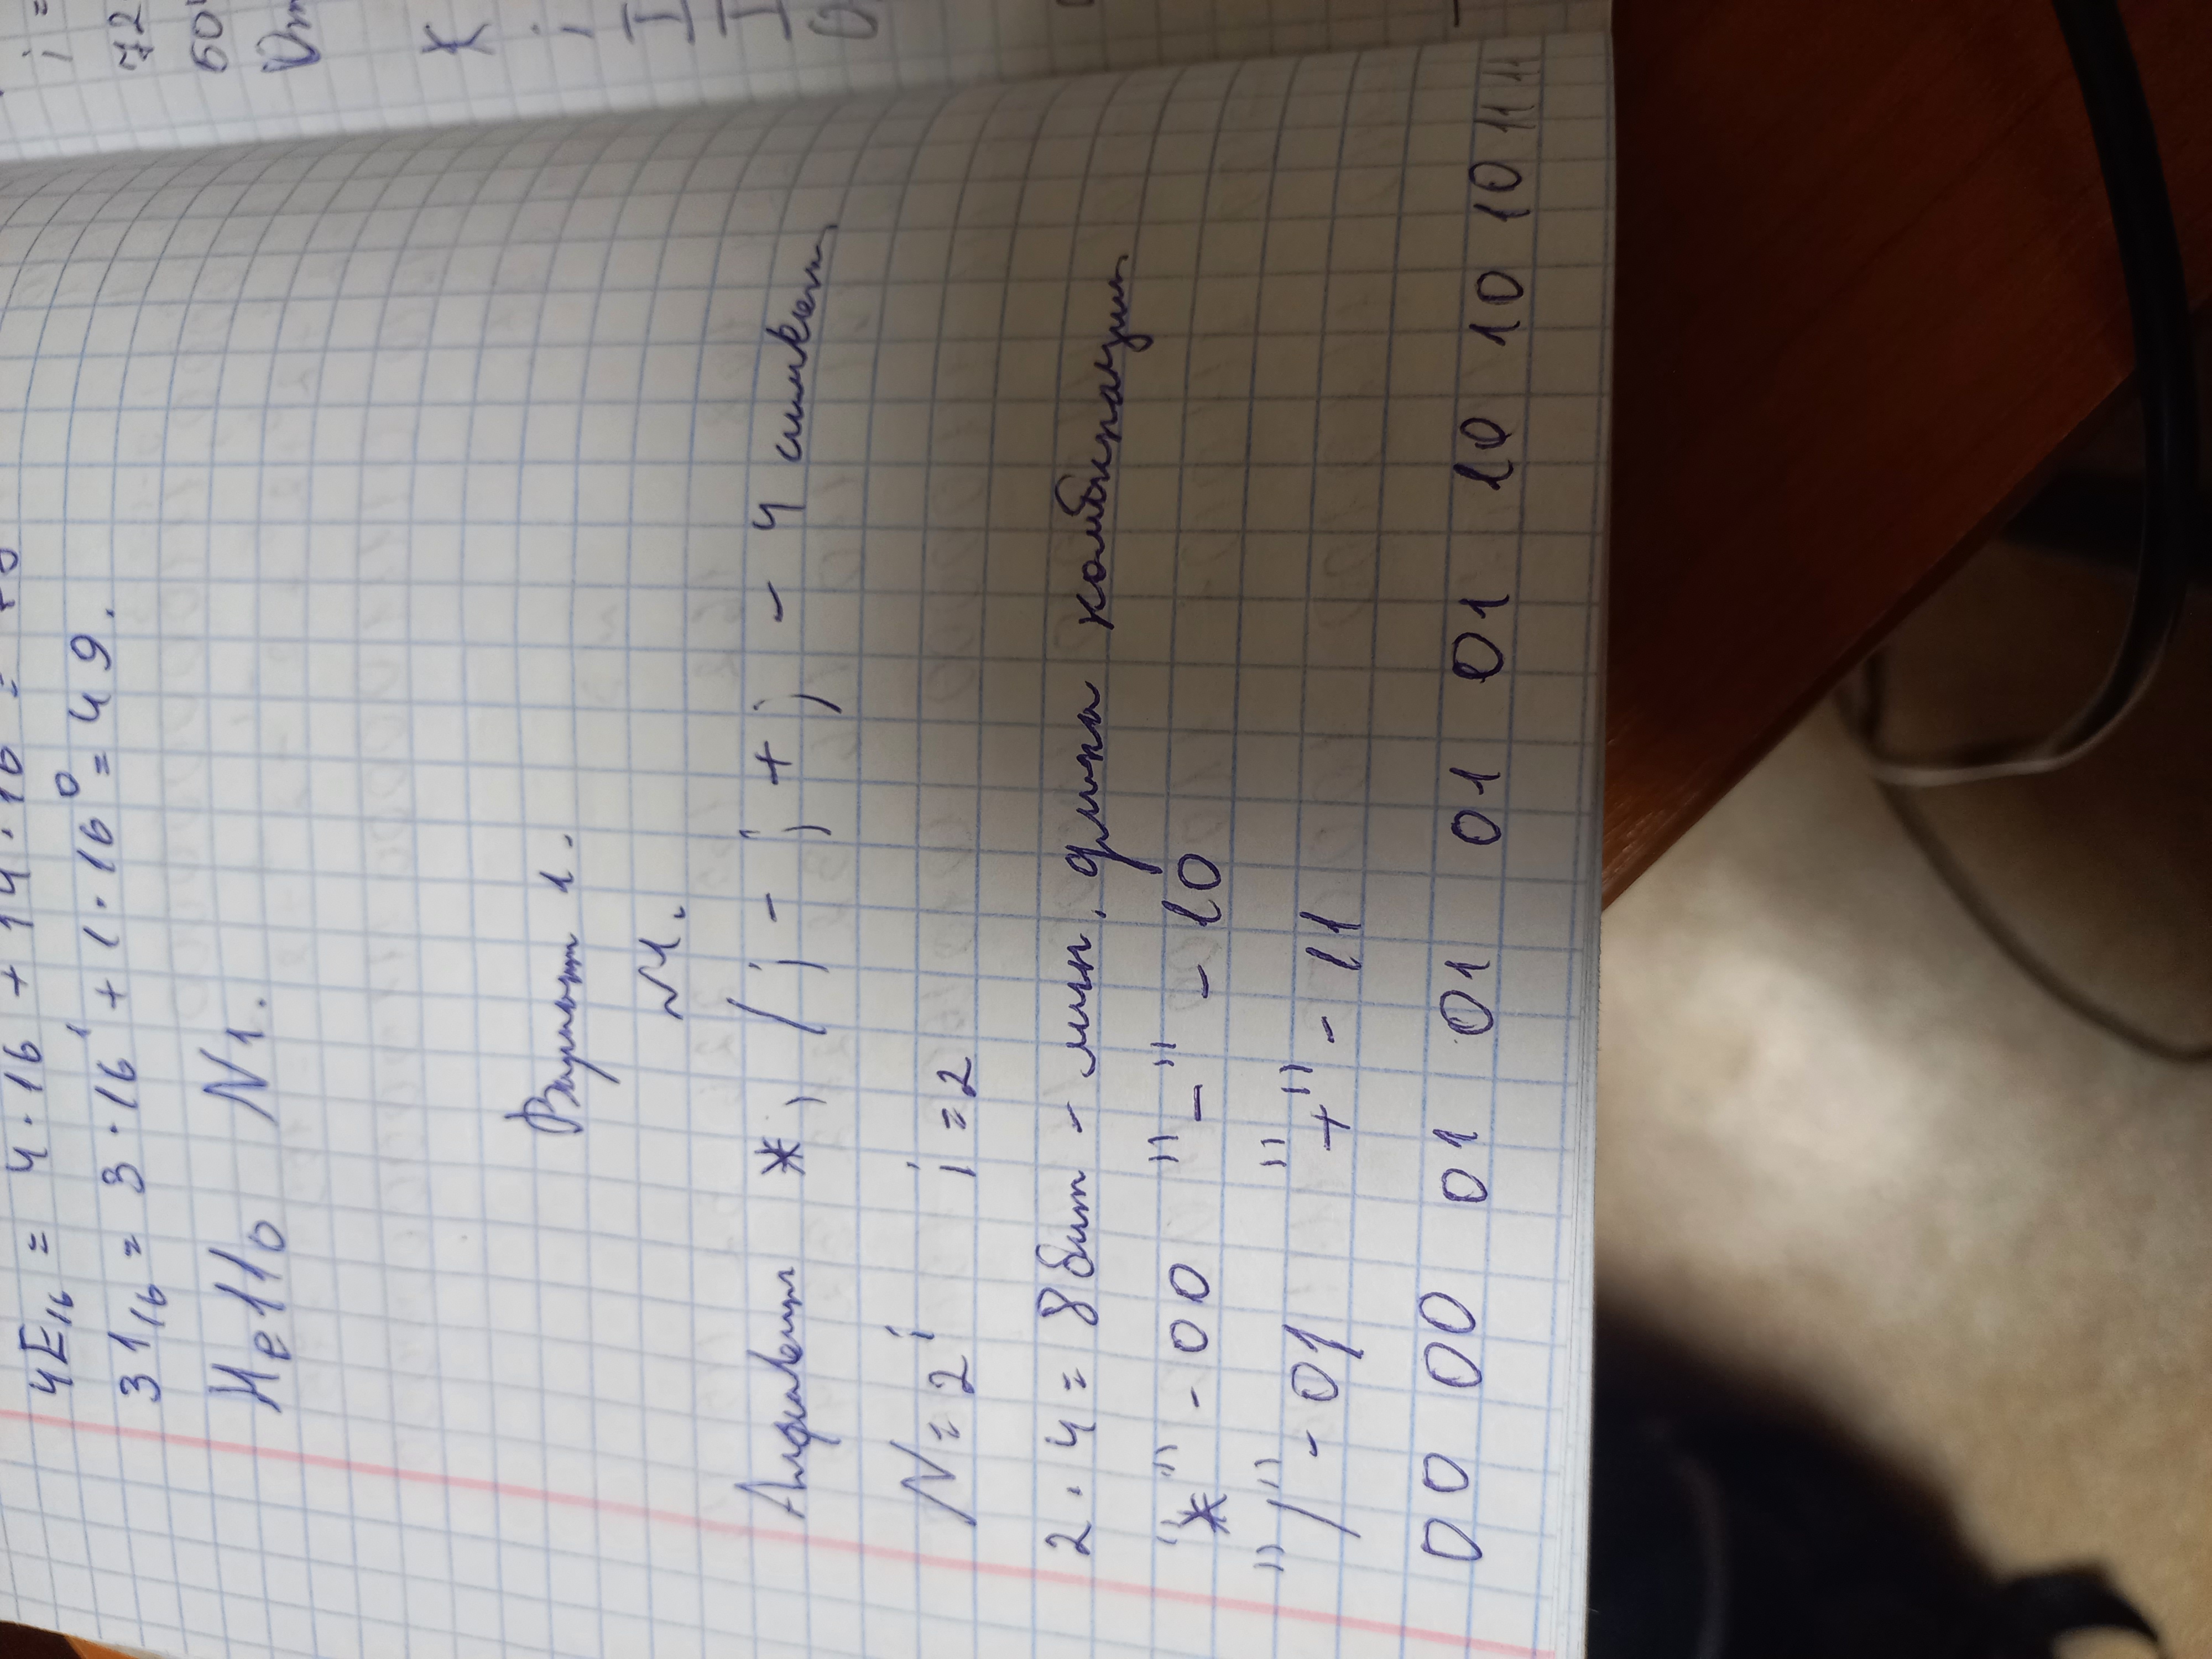 4E₁₆ = 4·16 + 14·16 = 78
31₁₆ = 3·16¹ + 1·16⁰ = 49.
Hello N1.
Вариант 1.
№1.
Алфавит *, / ; - ; + ; - 4 символа
N = 2ⁱ i = 2
2 · 4 = 8 бит - мин. длина комбинации
"*" - 00 "-" - 10
"/" - 01 "+" - 11
00 00 01 01 01 01 10 10 10 11 11
i =
72
504
K
i
I